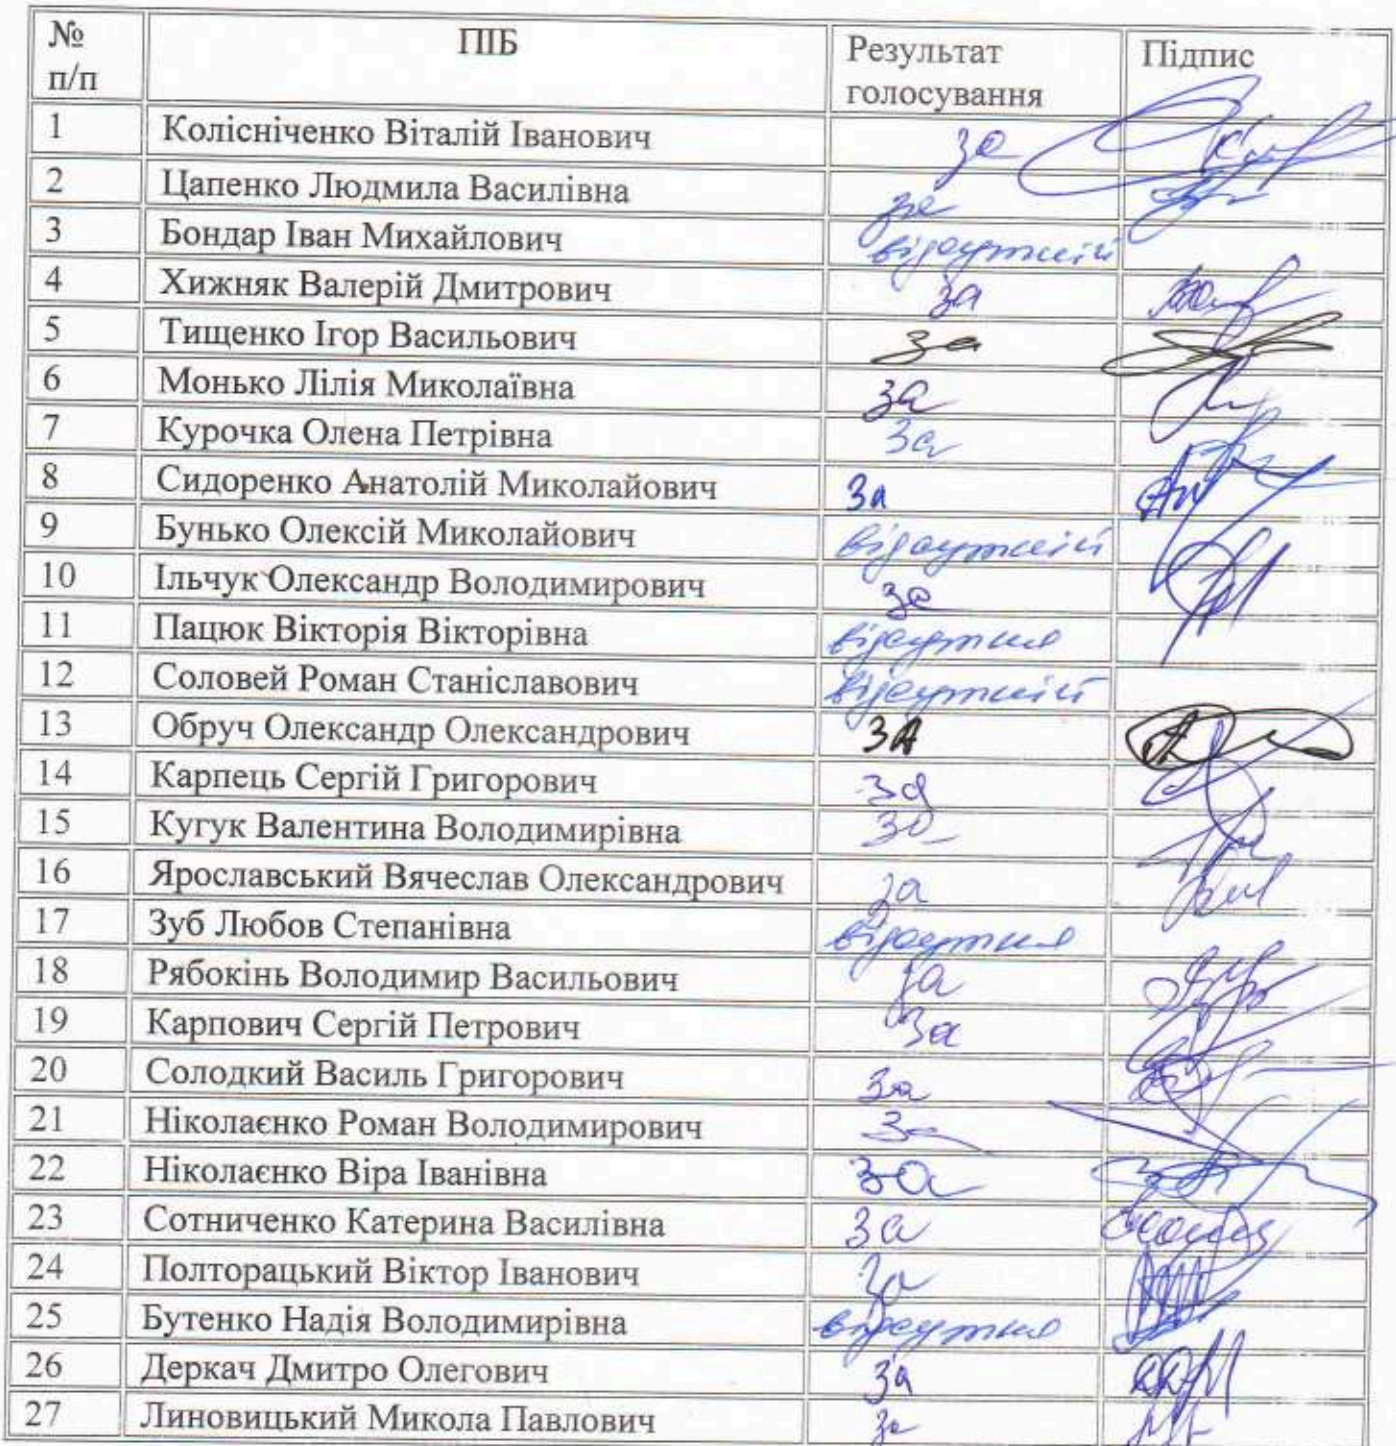 № п/п ПІБ Результат голосування Підпис
1 Колісніченко Віталій Іванович за
2 Цапенко Людмила Василівна за
3 Бондар Іван Михайлович відсутній
4 Хижняк Валерій Дмитрович за
5 Тищенко Ігор Васильович за
6 Монько Лілія Миколаївна за
7 Курочка Олена Петрівна за
8 Сидоренко Анатолій Миколайович за
9 Бунько Олексій Миколайович відсутній
10 Ільчук Олександр Володимирович за
11 Пацюк Вікторія Вікторівна відсутня
12 Соловей Роман Станіславович відсутній
13 Обруч Олександр Олександрович ЗА
14 Карпець Сергій Григорович за
15 Кугук Валентина Володимирівна за
16 Ярославський Вячеслав Олександрович за
17 Зуб Любов Степанівна відсутня
18 Рябокінь Володимир Васильович за
19 Карпович Сергій Петрович За
20 Солодкий Василь Григорович За
21 Ніколаєнко Роман Володимирович За
22 Ніколаєнко Віра Іванівна за
23 Сотниченко Катерина Василівна за
24 Полторацький Віктор Іванович За
25 Бутенко Надія Володимирівна відсутня
26 Деркач Дмитро Олегович за
27 Линовицький Микола Павлович за